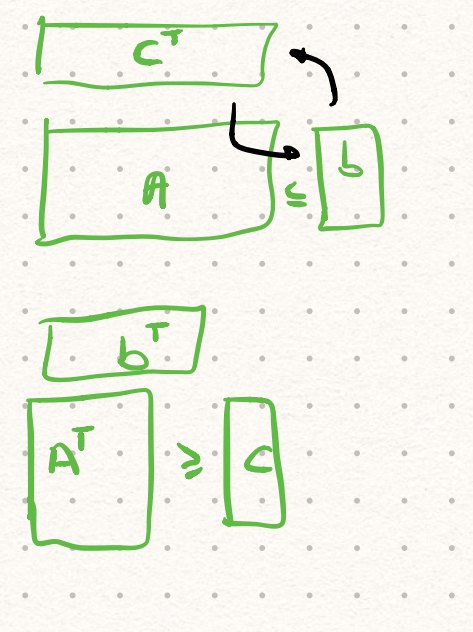 C^T
A ≤ b
b^T
A^T ≥ C